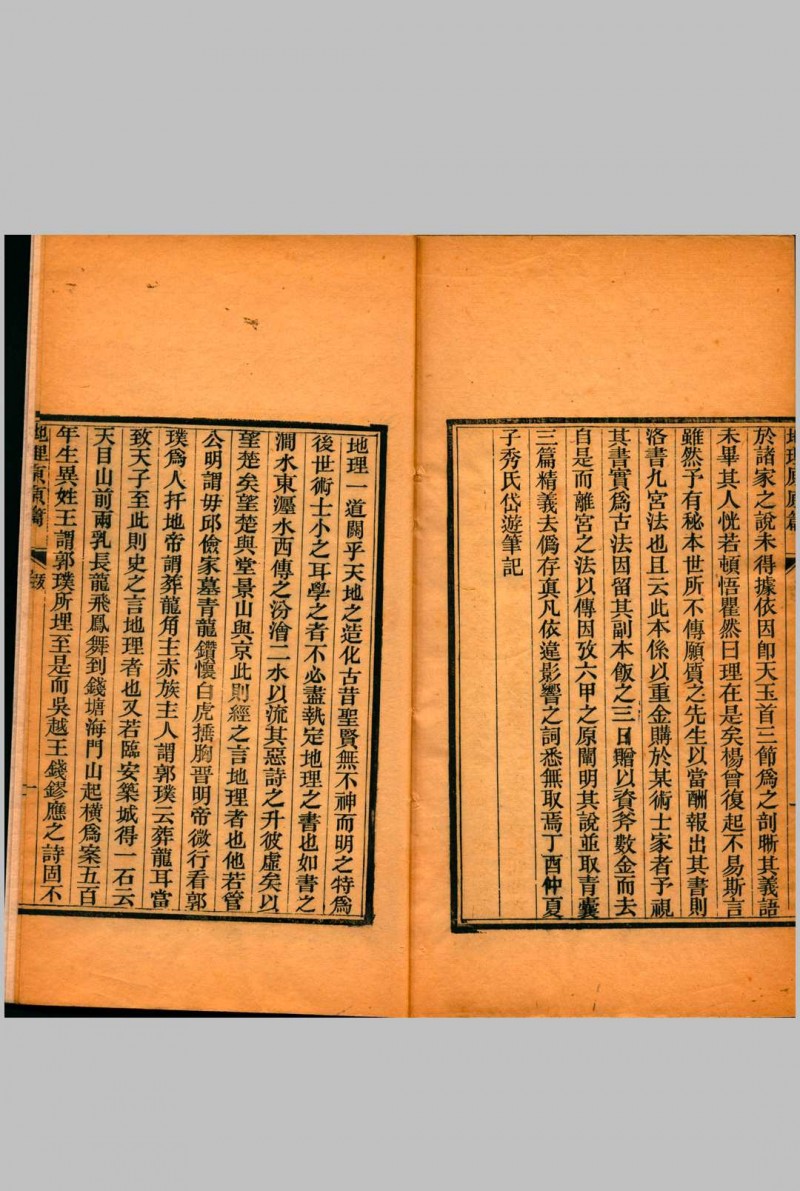 於諸家之說未得據依因卽天玉首三節爲之剖晰其義語
未畢其人恍若頓悟瞿然曰理在是矣楊曾復起不易斯言
雖然予有秘本世所不傳願質之先生以當酬報出其書則
洛書九宮法也且云此本係以重金購於某術士家者予視
其書實爲古法因留其副本飯之三日贈以資斧數金而去
自是而離宮之法以傳因攷六甲之原闡明其說並取青囊
三篇精義去僞存眞凡依違影響之詞悉無取焉丁酉仲夏
子秀氏岱遊筆記
地理一道關乎天地之造化古昔聖賢無不神而明之特爲
後世術士小之耳學之者不必盡執定地理之書也如書之
澗水東瀍水西傳之汾澮二水以流其惡詩之升彼虛矣以
望楚矣望楚與堂景山與京此則經之言地理者也他若管
公明謂毋邱儉家墓青龍鑽懷白虎捶胸晋明帝微行看郭
璞爲人扞地帝謂葬龍角主赤族主人謂郭璞云葬龍耳當
致天子至此則史之言地理者也又若臨安築城得一石云
天目山前兩乳長龍飛鳳舞到錢塘海門山起橫爲案五百
年生異姓王謂郭璞所埋至是而吳越王錢鏐應之詩固不